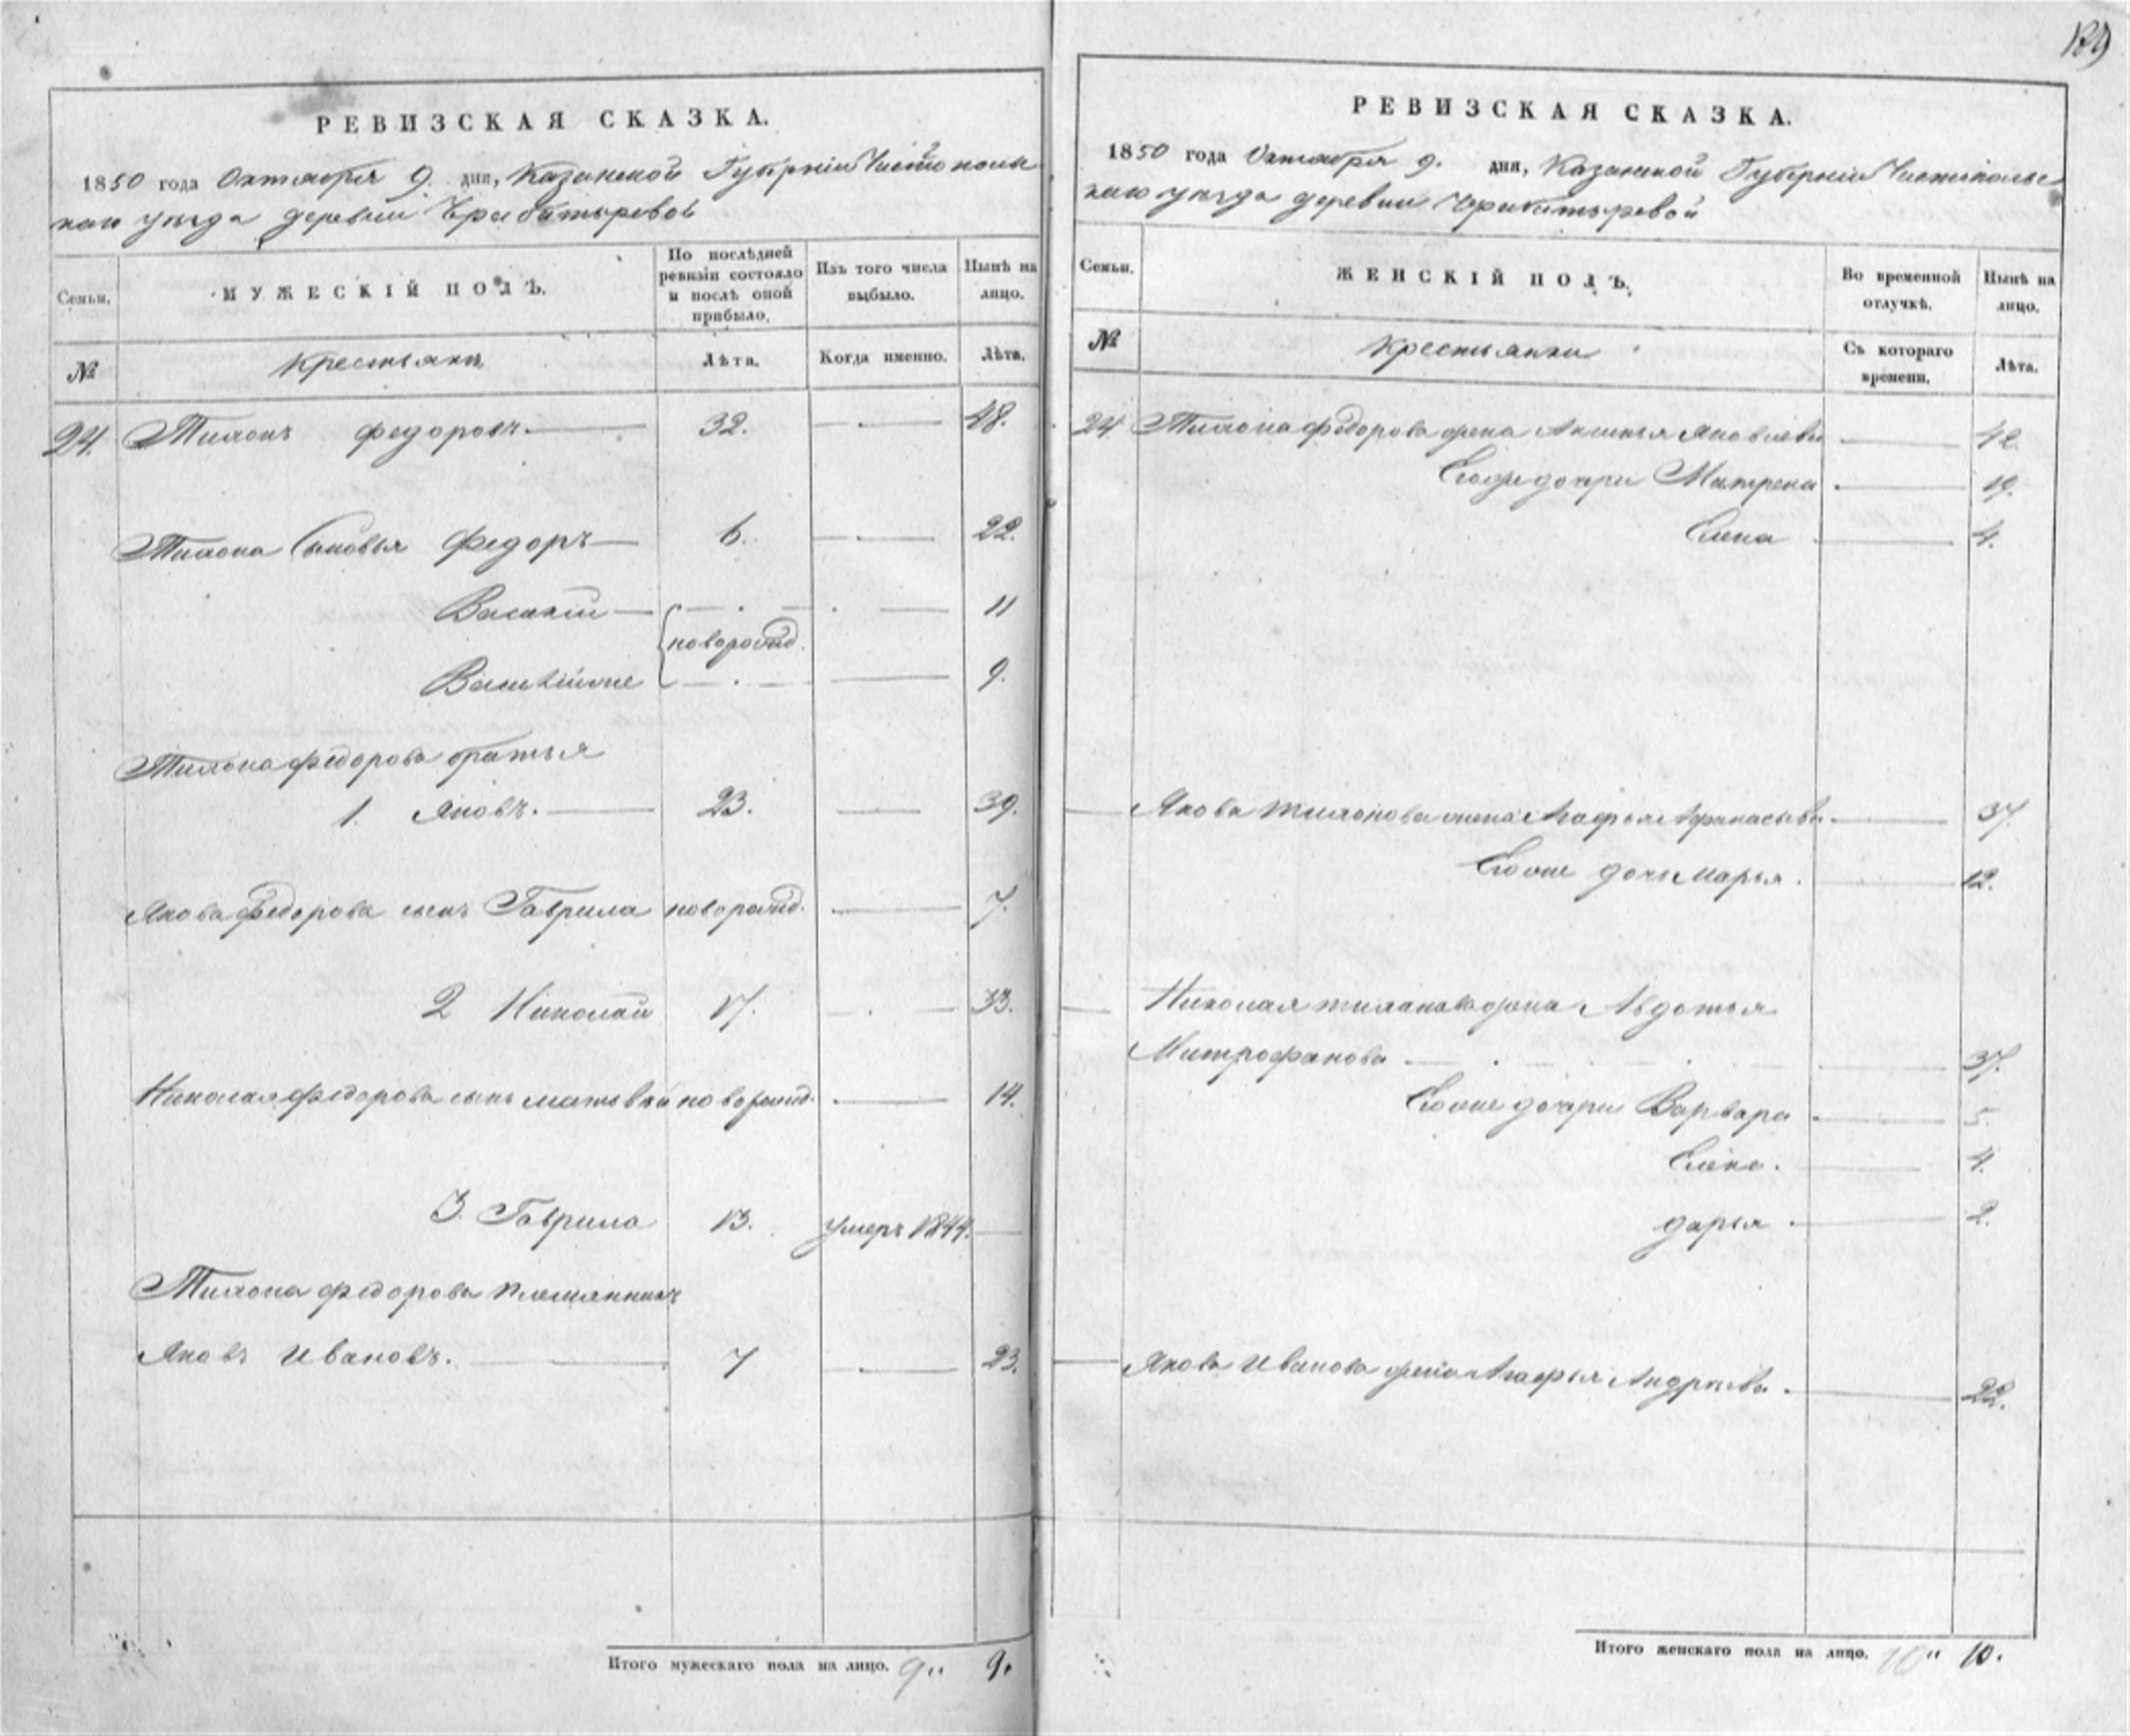 139
РЕВИЗСКАЯ СКАЗКА.
1850 года Октября 9. дня, Казанской Губерніи Чистополь
каго уезда деревни
Семьи.
МУЖЕСКІЙ ПОЛЪ.
По послѣдней ревизіи состояло и послѣ оной прибыло.
Изъ того числа выбыло.
Нынѣ на лицо.
№
Крестьяне
Лѣта.
Когда именно.
Лѣта.
24. Тихонъ Федоровъ. 32. 48.
Тихона Сыновья Федоръ 6. 22.
Василій 11
новорожд.
Василійже 9.
Тихона Федорова братья
1. Яковъ. 23. 39.
Якова Федорова сынъ Гаврила новорожд. 7.
2 Николай 17. 33.
Николая Федорова сынъ Матвѣй новорожд. 14.
3. Гаврила 13. умеръ 1844.
Тихона Федорова племянникъ
Яковъ Ивановъ. 7 23.
Итого мужескаго пола на лицо. 9" 9.
РЕВИЗСКАЯ СКАЗКА.
1850 года Октября 9. дня, Казанской Губерніи Чистопольс
каго уезда деревни
Семьи.
ЖЕНСКІЙ ПОЛЪ.
Во временной отлучкѣ.
Нынѣ на лицо.
№
Крестьянки
Съ котораго времени.
Лѣта.
24. Тихона Федорова жена Аксинья Яковлева 42.
Егоже дочери Матрена 19.
Елена 4.
Якова Тихонова жена Агафья Афанасьева. 37.
Егоже дочь Марья. 12.
Николая Тиханова жена Авдотья
Митрофанова 37.
Егоже дочери Варвара 5.
Елена. 4.
Дарья. 2.
Якова Иванова жена Агафья Андреева. 22.
Итого женскаго пола на лицо. 10" 10.